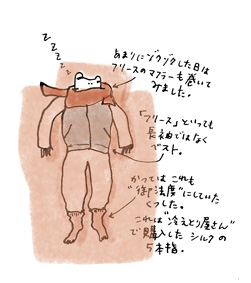 z z z z
あまりにゾクゾクした日は
フリースのマフラーも巻いて
みました。
「フリース」といっても
長袖ではなく
ベスト。
かつては これも
"御法度"にしていた
くつした。
これは "冷えとり屋さん"
で購入した シルクの
5本指。